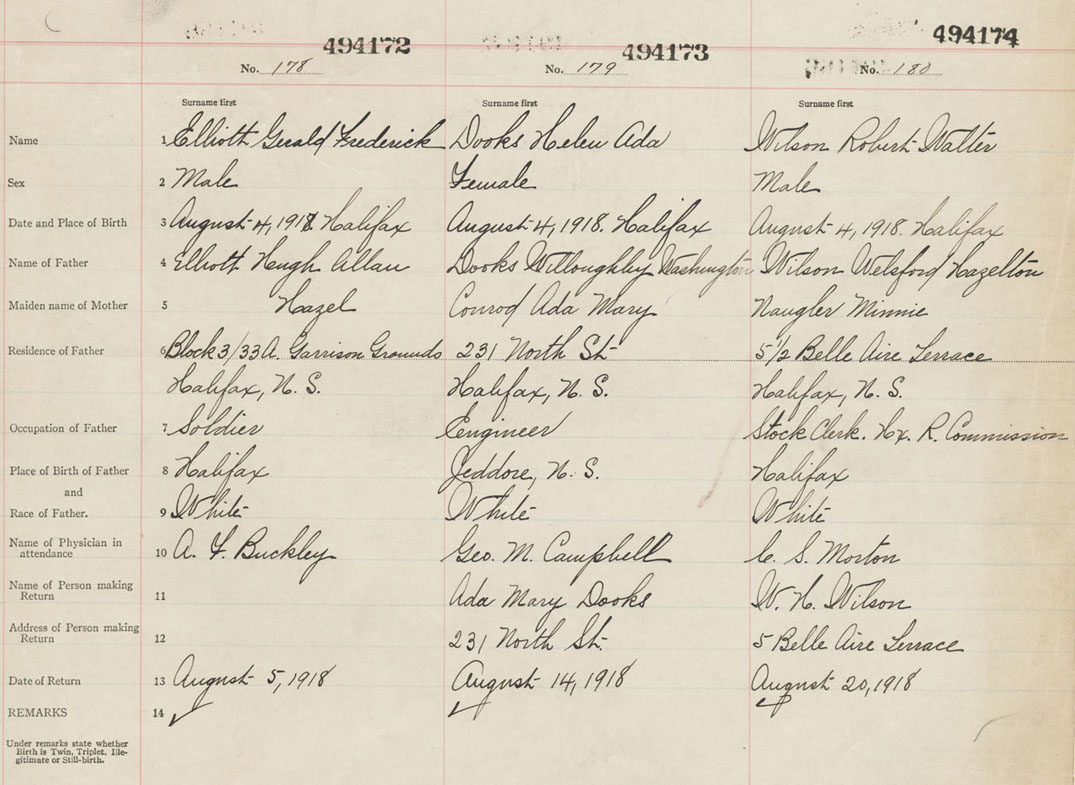 494172 494173 494174
No. 178 No. 179 No. 180
Surname first Surname first Surname first
Name 1 Elliott Gerald Frederick Dooks Helen Ada Wilson Robert Walter
Sex 2 Male Female Male
Date and Place of Birth 3 August 4, 1918. Halifax August 4, 1918. Halifax August 4, 1918. Halifax
Name of Father 4 Elliott Hugh Allan Dooks Willoughby Washington Wilson Welsford Hazelton
Maiden name of Mother 5 Hazel Conrod Ada Mary Naugler Minnie
Residence of Father 6 Block 3/33A. Garrison Grounds 231 North St. 5 1/2 Belle Aire Terrace
Halifax, N. S. Halifax, N. S. Halifax, N. S.
Occupation of Father 7 Soldier Engineer Stock Clerk. Hx. R. Commission
Place of Birth of Father 8 Halifax Jeddore, N. S. Halifax
and
Race of Father. 9 White White White
Name of Physician in
attendance 10 A. F. Buckley Geo. M. Campbell C. S. Morton
Name of Person making
Return 11 Ada Mary Dooks W. H. Wilson
Address of Person making
Return 12 231 North St. 5 Belle Aire Terrace
Date of Return 13 August 5, 1918 August 14, 1918 August 20, 1918
REMARKS 14 ✓ ✓ ✓
Under remarks state whether
Birth is Twin, Triplet, Ille-
gitimate or Still-birth.